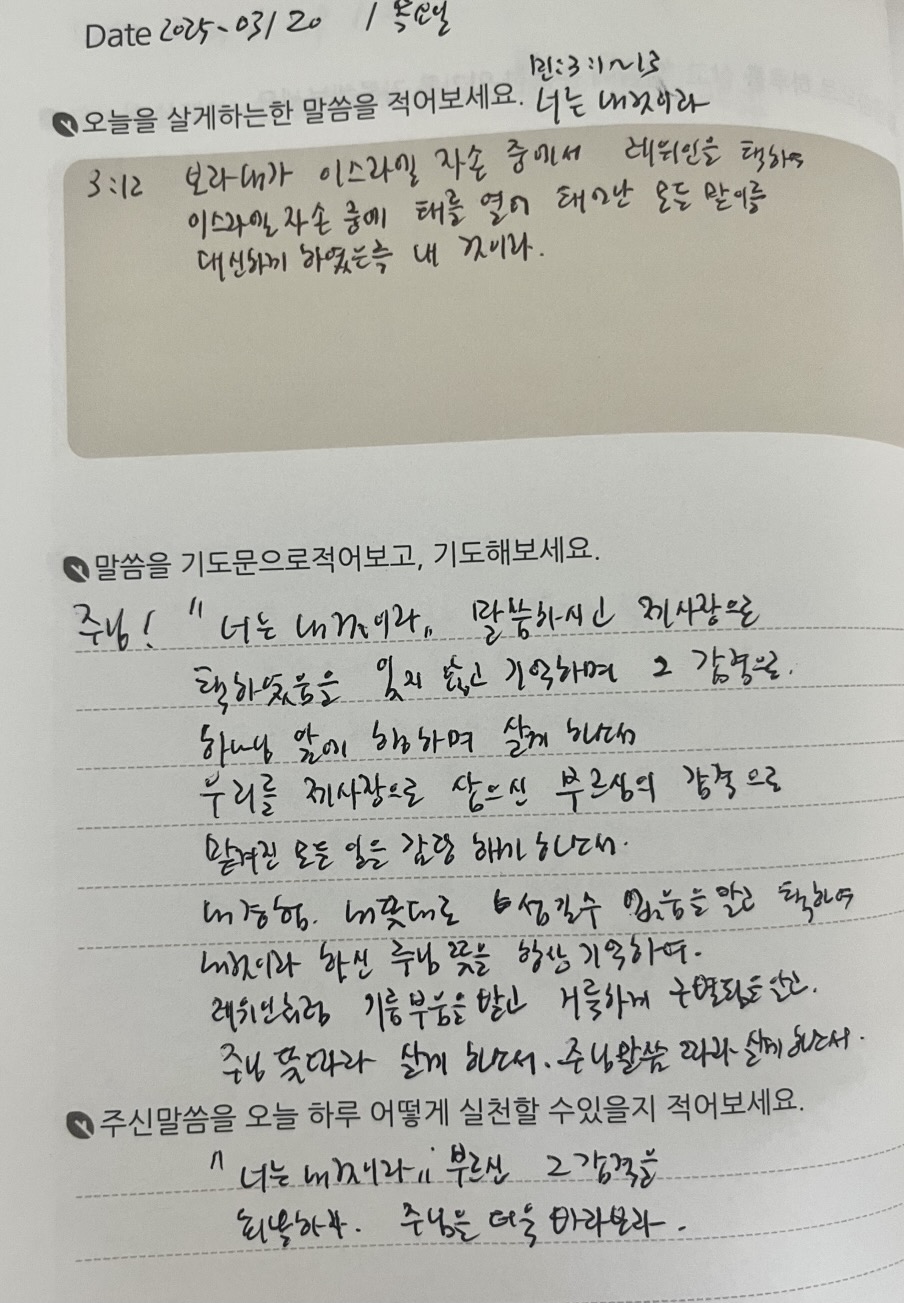 Date 2025-03/20 / 목요일
민:3:1~13
오늘을 살게하는한 말씀을 적어보세요. 너는 내것이라
3:12 보라 내가 이스라엘 자손 중에서 레위인을 택하여
이스라엘 자손 중에 태를 열어 태어난 모든 맏이를
대신하게 하였은즉 내 것이라.
말씀을 기도문으로적어보고, 기도해보세요.
주님! "너는 내것이라" 말씀하시고 제사장으로
택하였음을 잊지 않고 기억하며 그 감격으로.
하나님 앞에 행하며 살게 하소서
우리를 제사장으로 삼으신 부르심의 감격으로
맡겨진 모든 일을 감당 하게 하소서.
내경험. 내뜻대로 섬길수 없음을 알고 택하여
내것이라 하신 주님 뜻을 항상 기억하며.
레위인처럼 기름부음을 받고 거룩하게 구별됨을 알고.
주님 뜻따라 살게 하소서. 주님말씀 따라 살게 하소서.
주신말씀을 오늘 하루 어떻게 실천할 수있을지 적어보세요.
"너는 내것이라" 부르신 그 감격을
회복하라. 주님을 더욱 바라보라.